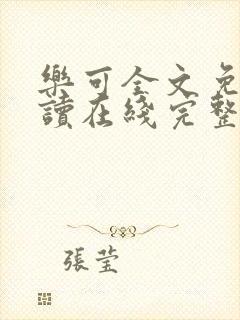 樂可全文免
讀在綫完整
張莹